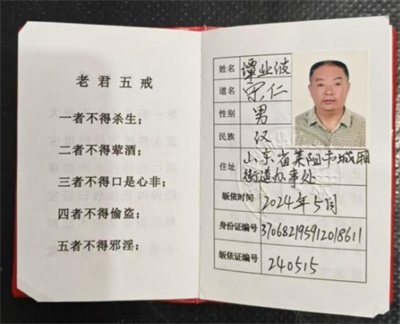 老君五戒
一者不得杀生；
二者不得荤酒；
三者不得口是心非；
四者不得偷盗；
五者不得邪淫；
姓名 谭业波
道名
性别 男
民族 汉
住址 山东省莱阳市城厢
街道办事处
皈依时间 2024年5月
身份证编号 370682195912018611
皈依证编号 240515